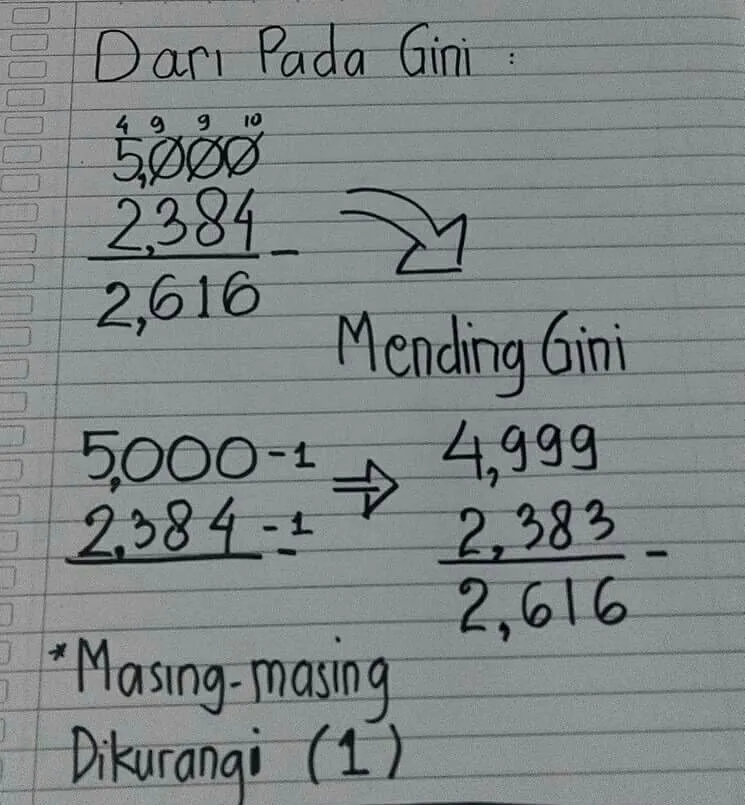 Dari Pada Gini :
4 9 9 10
5,000
2,384 -
2,616
Mending Gini
5,000 -1 ⇒ 4,999
2,384 -1 - 2,383 -
2,616
*Masing-masing
Dikurangi (1)